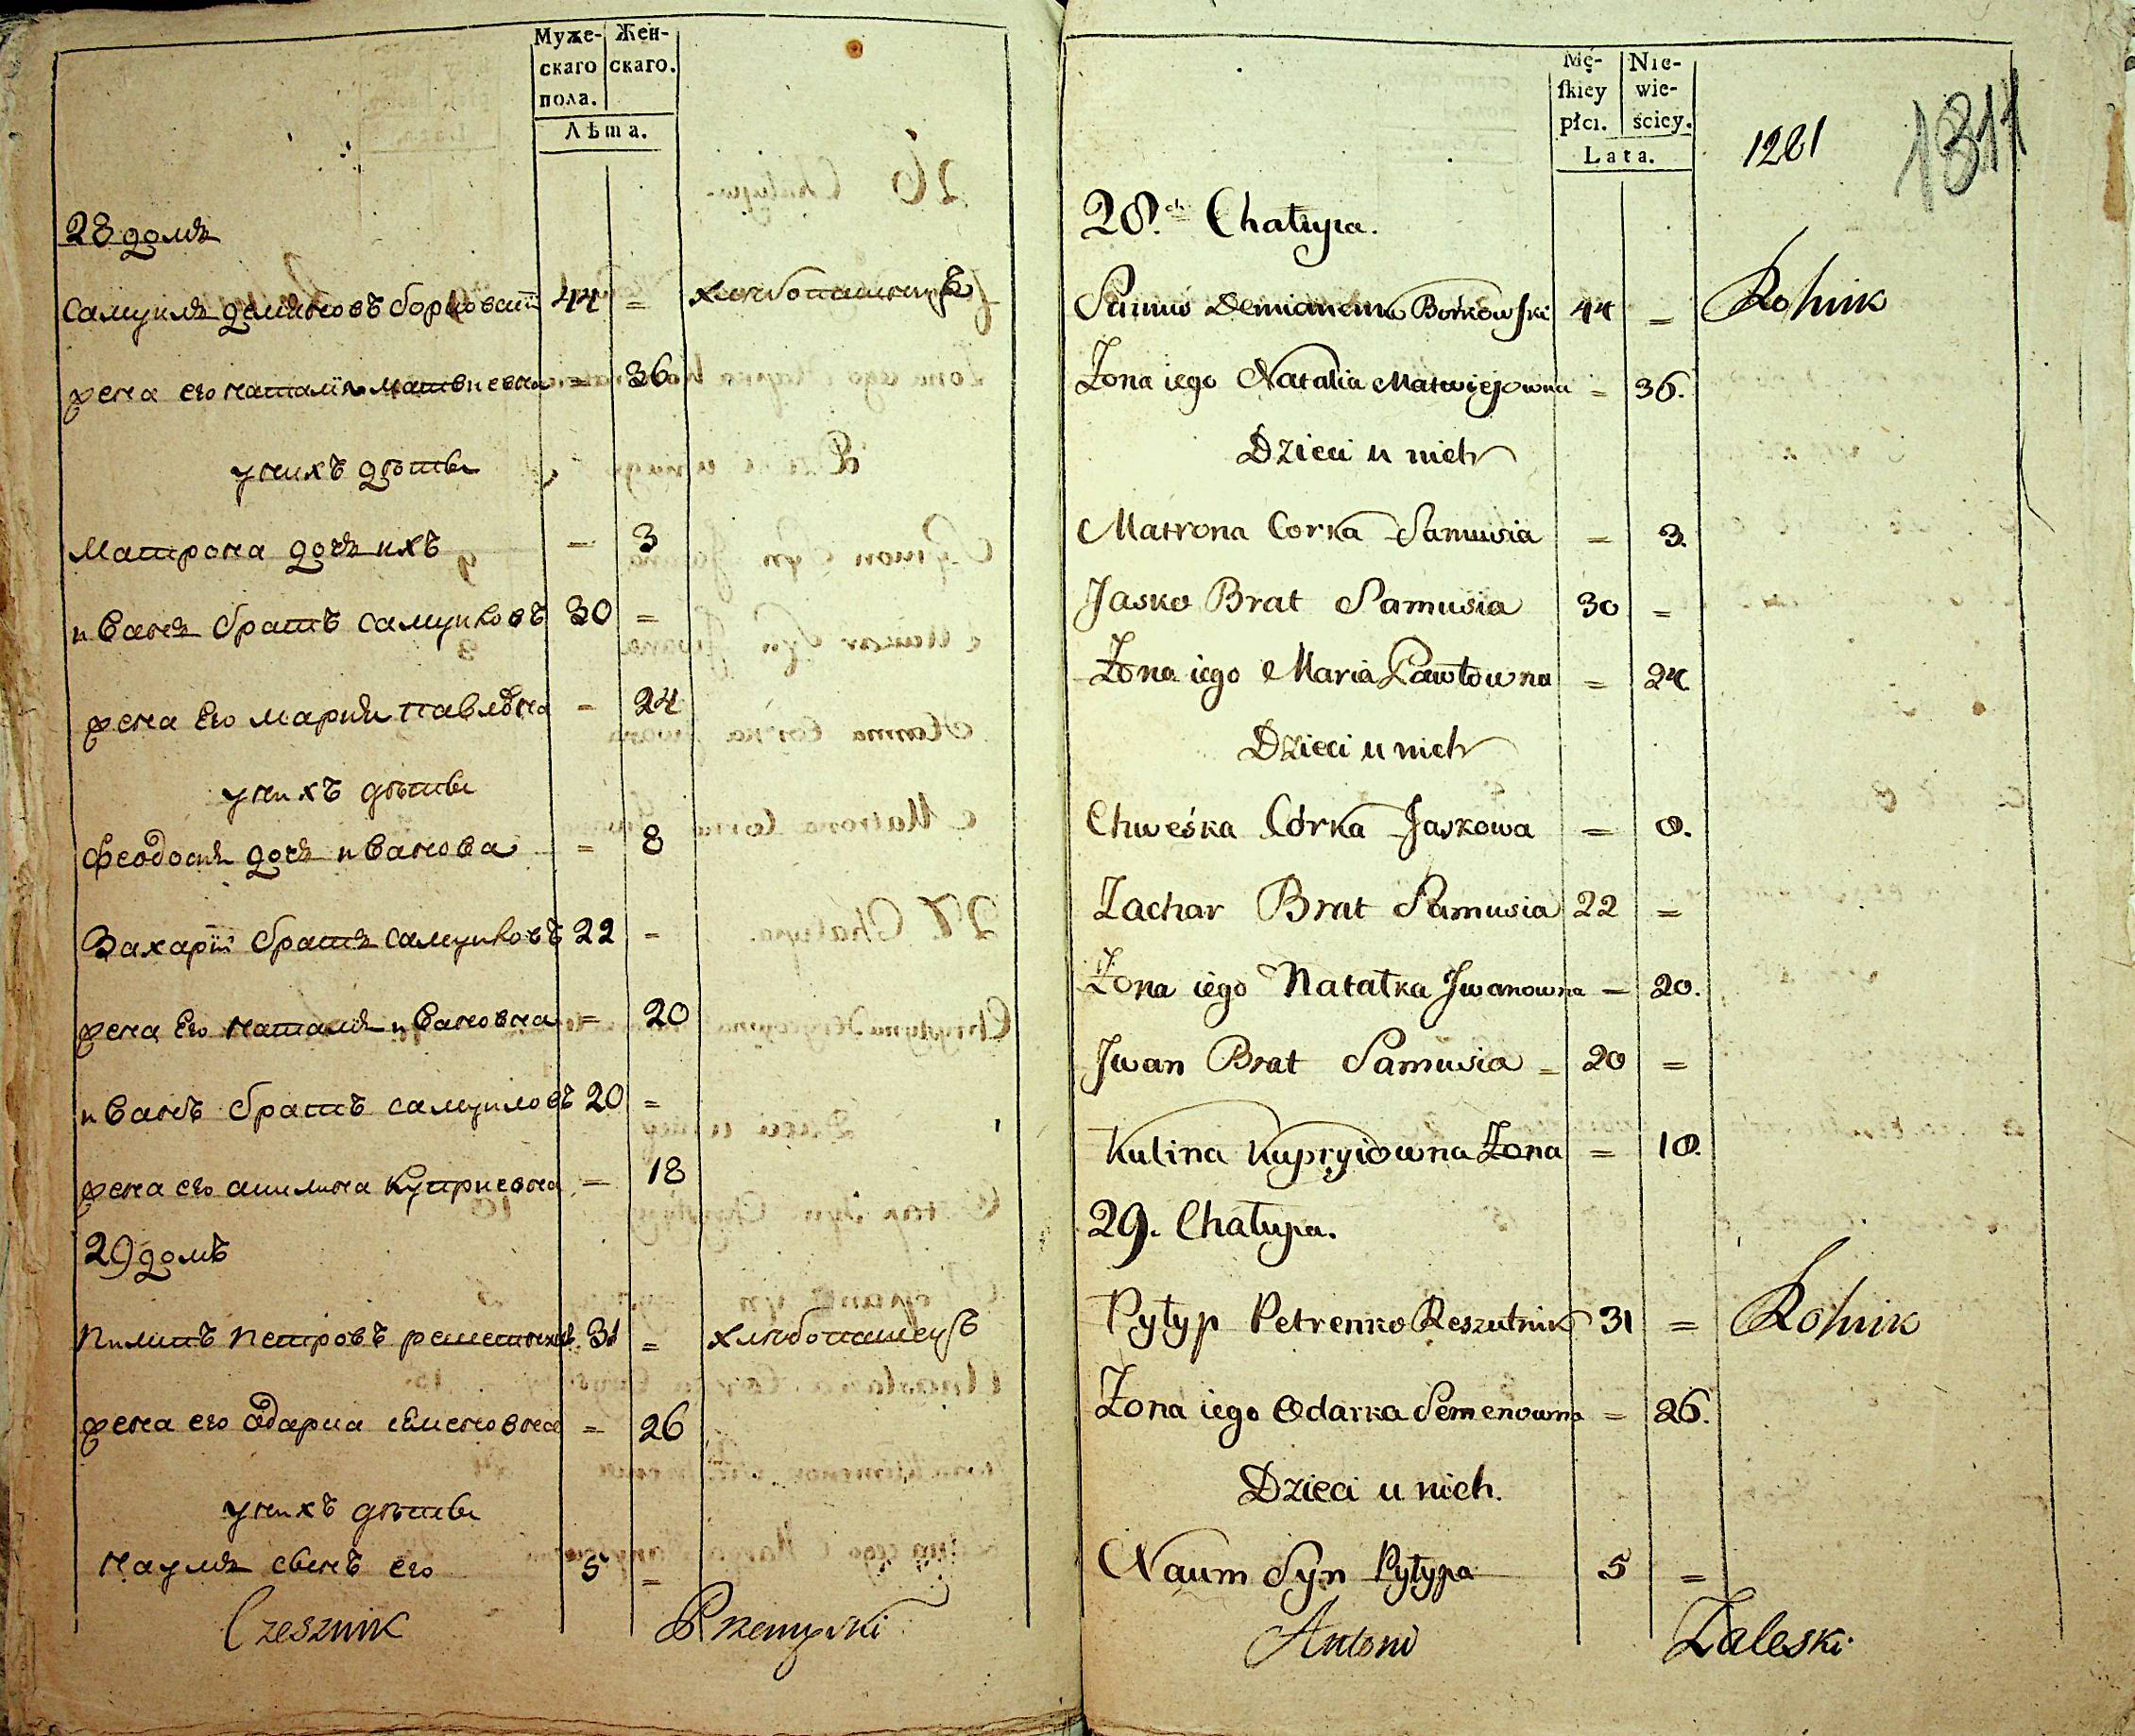 Муже- Жен-
скаго скаго.
пола.
Лѣта.
28 домъ
Самуилъ Демяновъ Борковскій 44 = хлѣбопашецъ
жена его Наталія Матвѣевна = 36
у нихъ дѣти
Матрона дочь ихъ = 3
Иванъ братъ Самуиловъ 30 =
жена его Марія Павловна = 24
у нихъ дѣти
Феодосія дочь Иванова = 8
Захарій братъ Самуиловъ 22 =
жена его Наталія Ивановна = 20
Иванъ братъ Самуиловъ 20 =
жена его Акилина Куприевна = 18
29 домъ
Пилипъ Петровъ 31 = хлѣбопашецъ
жена его Одарка Семеновна = 26
у нихъ дѣти
Наумъ сынъ его 5 =
Czesznik Przemyski
Mę- Nie-
skiey wie-
płci. ścicy.
Lata.
1281
1311
28. Chałupa.
Samuś Demianenko Borkowski 44 = Rolnik
Żona iego Natalia Matwiejowna = 36.
Dzieci u nich
Matrona Corka Samusia = 3.
Jasko Brat Samusia 30 =
Żona iego Maria Pawłowna = 24
Dzieci u nich
Chweśka Córka Jaskowa = 8.
Zachar Brat Samusia 22 =
Żona iego Natałka Jwanowna = 20.
Jwan Brat Samusia = 20 =
Kulina Kupryiowna Żona = 18.
29. Chałupa.
Pyłyp Petrenko Reszutnik 31 = Rolnik
Żona iego Odarka Semenowna = 26.
Dzieci u nich.
Naum Syn Pyłypa 5 =
Antoni Zaleski